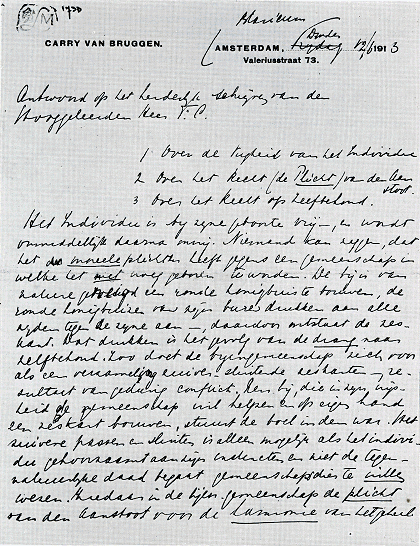 1730
Marinus
CARRY VAN BRUGGEN.
AMSTERDAM, Donderdag 12/6 1913
Valeriusstraat 73.
Antwoord op het herderlijk schrijven van den
Hooggeleerden Heer
1 Over de vrijheid van het Individu
2 Over het Recht (de Plicht) van den Aanstoot.
3 Over het Recht op zelfbehoud.
Het Individu is bij zijne geboorte vrij, en wordt
onmiddellijk daarna onvrij. Niemand kan zeggen, dat
het moreele plichten heeft jegens een gemeenschap in
welke het niet vroeg geboren te worden. De bij is van
nature een ronde honigbuis te bouwen, de
ronde honigbuizen van zijn buren drukken aan alle
zijden tegen de zijne aan —, daardoor ontstaat de zes-
kant. Dat drukken is het gevolg van de drang naar
zelfbehoud. Zoo doet de bijengemeenschap zich voor
als een verzameling zuiver sluitende zeskanten, re-
sultaat van gedurig conflict. Een bij die in zijn vrij-
heid de gemeenschap wil helpen en op eigen hand
een zeskant bouwen, stuurt de boel in den war. Het
zuivere passen en sluiten is alleen mogelijk als het indivi-
du gehoorzaamt aan zijn instincten en niet de tegen-
natuurlijke daad begaat gemeenschapsdier te willen
wezen. Hierdoor is de gemeenschap de plicht
van den Aanstoot voor de Harmonie van het geheel